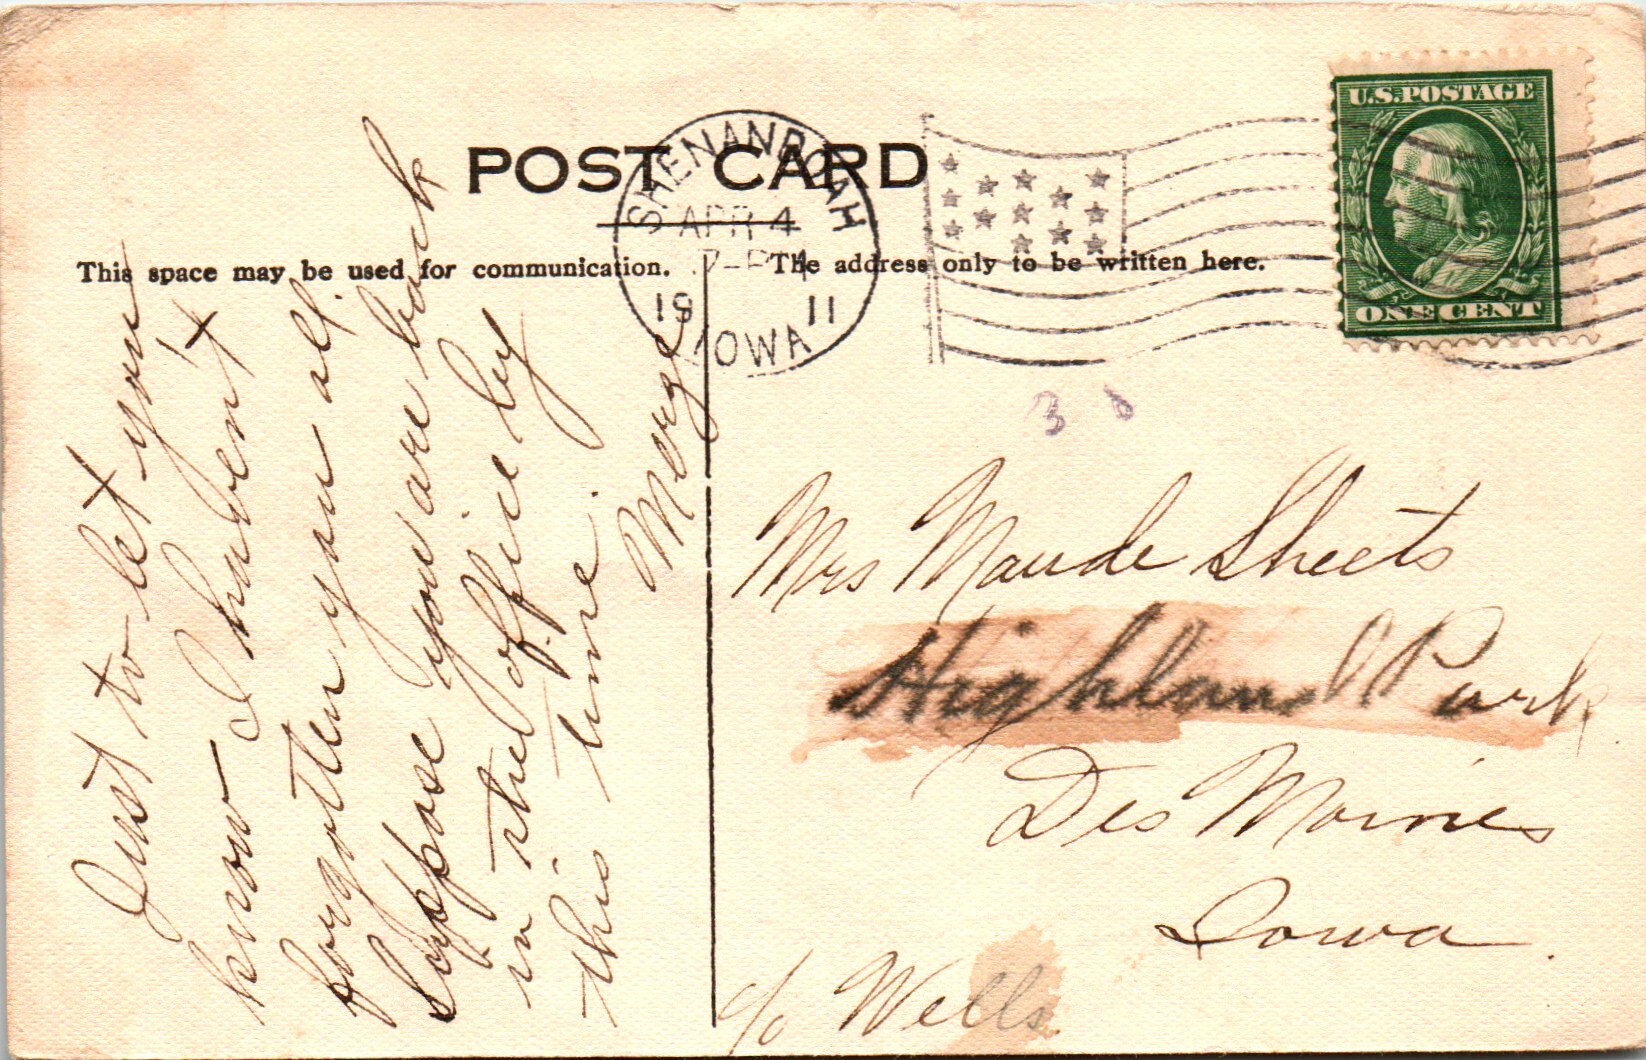 POST CARD
This space may be used for communication.
The address only to be written here.
SHENANDOAH
APR 4
7-PM
1911
IOWA
U.S. POSTAGE
ONE CENT
Just to let you
know I haven't
forgotten you all.
Suppose you are back
in the office by
this time.
Marge
3
Mrs Maude Sheets
Highland Park
Des Moines
Iowa.
c/o Wells.